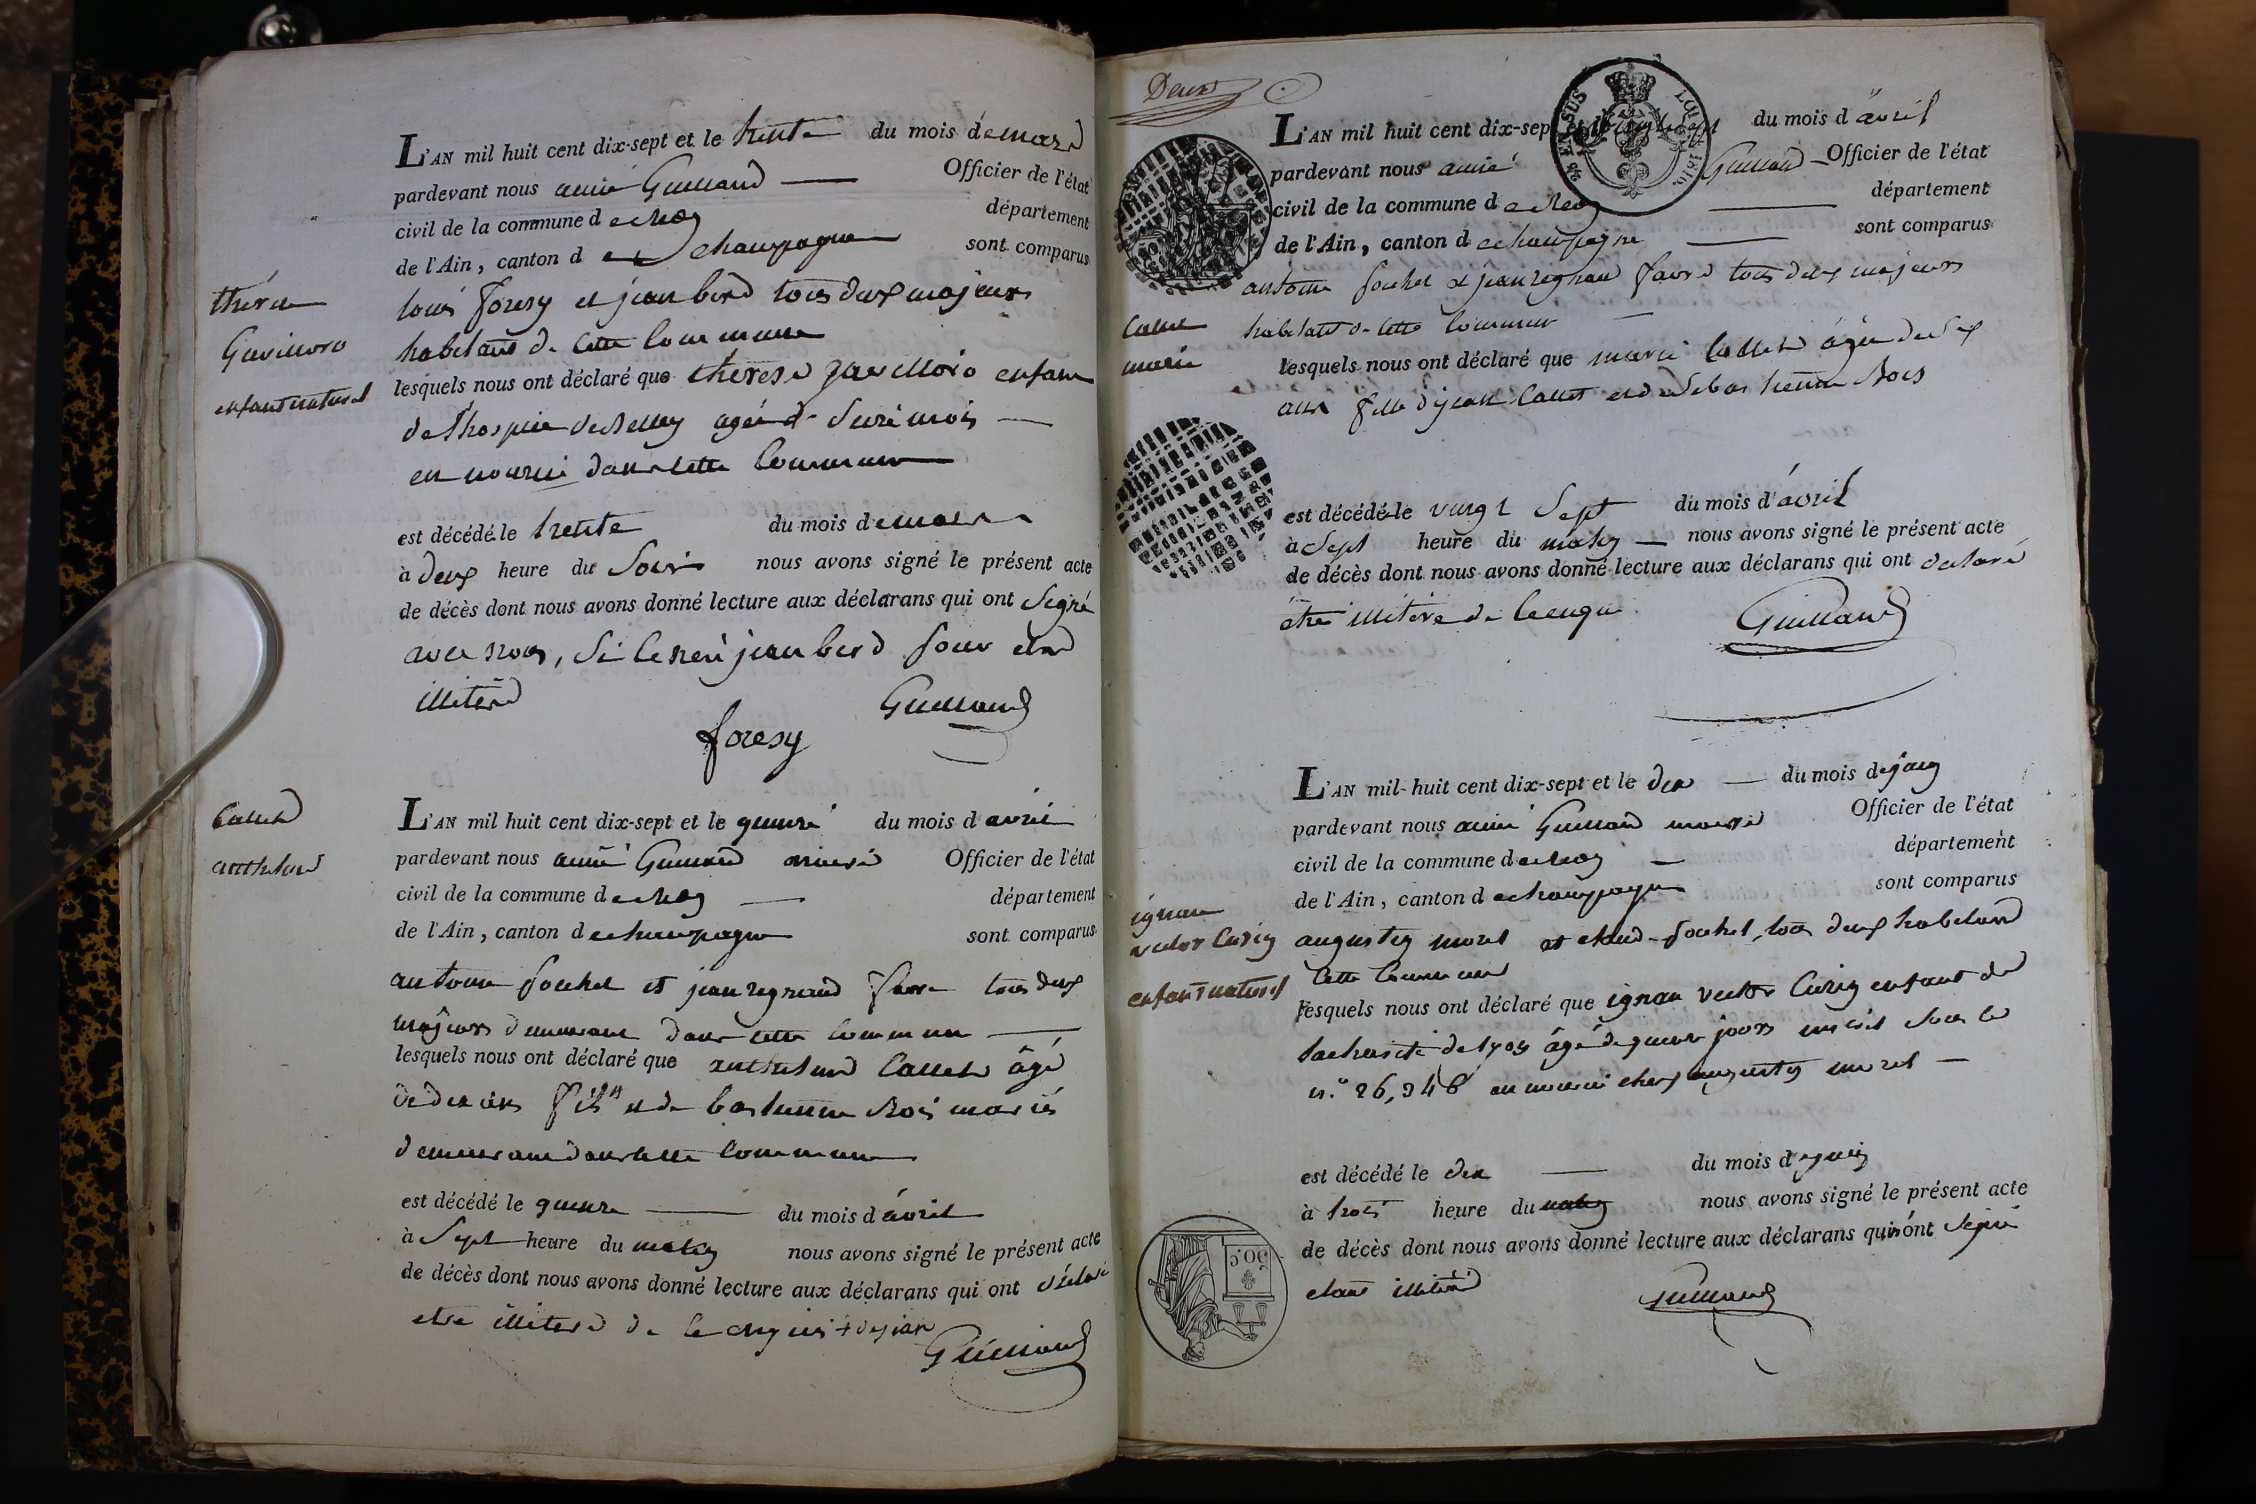 L'AN mil huit cent dix-sept et le trente du mois de mars
pardevant nous aimé Guilland Officier de l'état
civil de la commune d département
de l'Ain, canton d e champagne sont comparus
louis foresy et jean berd tous deux majeurs
habitans de cette commune
thérese
enfant naturel
lesquels nous ont déclaré que thérèse enfant
de l'hospice de Belley agée de mois
en nourice dans cette commune
est décédé le trente du mois de mars
à deux heure du soir nous avons signé le présent acte
de décès dont nous avons donné lecture aux déclarans qui ont signé
avec nous, jean berd pour etre
illiteré
Guilland
foresy
Callet
anthelme
L'AN mil huit cent dix-sept et le quinze du mois d'avril
pardevant nous aimé Guilland maire Officier de l'état
civil de la commune d département
de l'Ain, canton d e champagne sont comparus
antoine fouhet et jean regnaud favre tous deux
majeurs demeurant dans cette commune
lesquels nous ont déclaré que anthelme Callet âgé
de ans fils et de mariés
demeurant dans cette commune
est décédé le quinze du mois d'avril
à sept heure du matin nous avons signé le présent acte
de décès dont nous avons donné lecture aux déclarans qui ont déclaré
etre illiteré de ce enquis
Guilland
Deux
28 EN SUS
LOI de 1816.
L'AN mil huit cent dix-sept et le vingt sept du mois d'avril
pardevant nous aimé Guilland Officier de l'état
civil de la commune d département
de l'Ain, canton d e champagne sont comparus
antoine fouhet et jean regnaud favre tous deux majeurs
habitans de cette commune
Callet
marie
lesquels nous ont déclaré que marie Callet âgée de
ans fille de jean Callet et de
est décédé le vingt sept du mois d'avril
à sept heure du matin nous avons signé le présent acte
de décès dont nous avons donné lecture aux déclarans qui ont déclaré
être illitéré de ce enquis
Guilland
L'AN mil huit cent dix-sept et le dix du mois de juin
pardevant nous aimé Guilland maire Officier de l'état
civil de la commune d département
de l'Ain, canton d e champagne sont comparus
augustin morel et claude fouhet, tous deux habitans
cette commune
ignace
victor Curin
enfant naturel
lesquels nous ont déclaré que ignace victor Curin enfant de
la charité de lyon âgé de jours inscrit sous le
n.° 26,348 en nourice chez augustin morel
est décédé le dix du mois de juin
à trois heure du matin nous avons signé le présent acte
de décès dont nous avons donné lecture aux déclarans qui n'ont signé
etant illiteré
Guilland
50.c